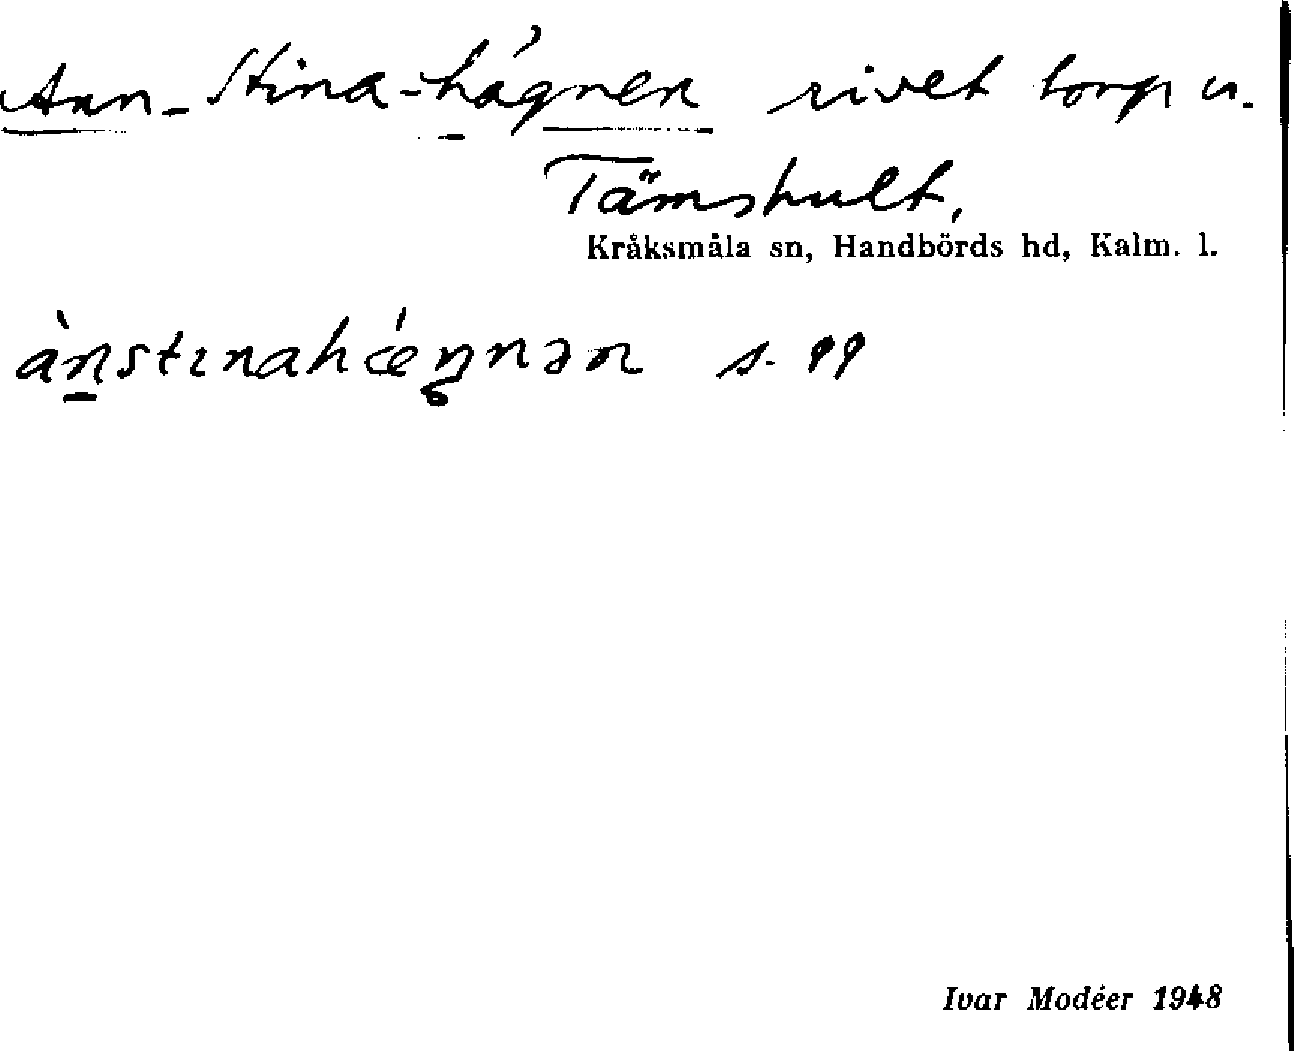 Ann-Stina-hägnen rivet torp u.
Tämshult,
Kråksmåla sn, Handbörds hd, Kalm. l.
s. 99
Ivar Modéer 1948